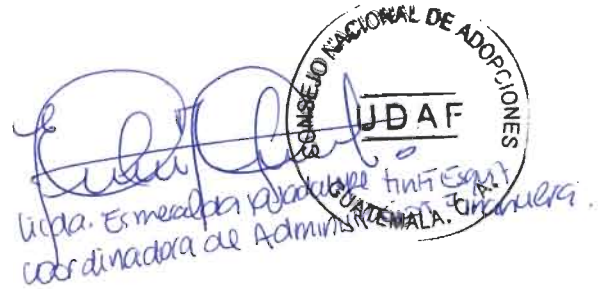 CONSEJO NACIONAL DE ADOPCIONES
UDAF
GUATEMALA, C. A.
Licda. Esmeralda Tiní
Coordinadora de Administración Financiera.